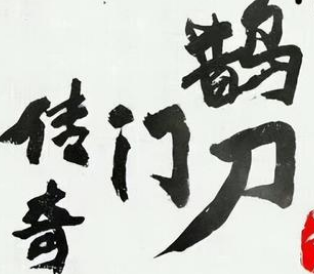 鹊刀
门
传奇